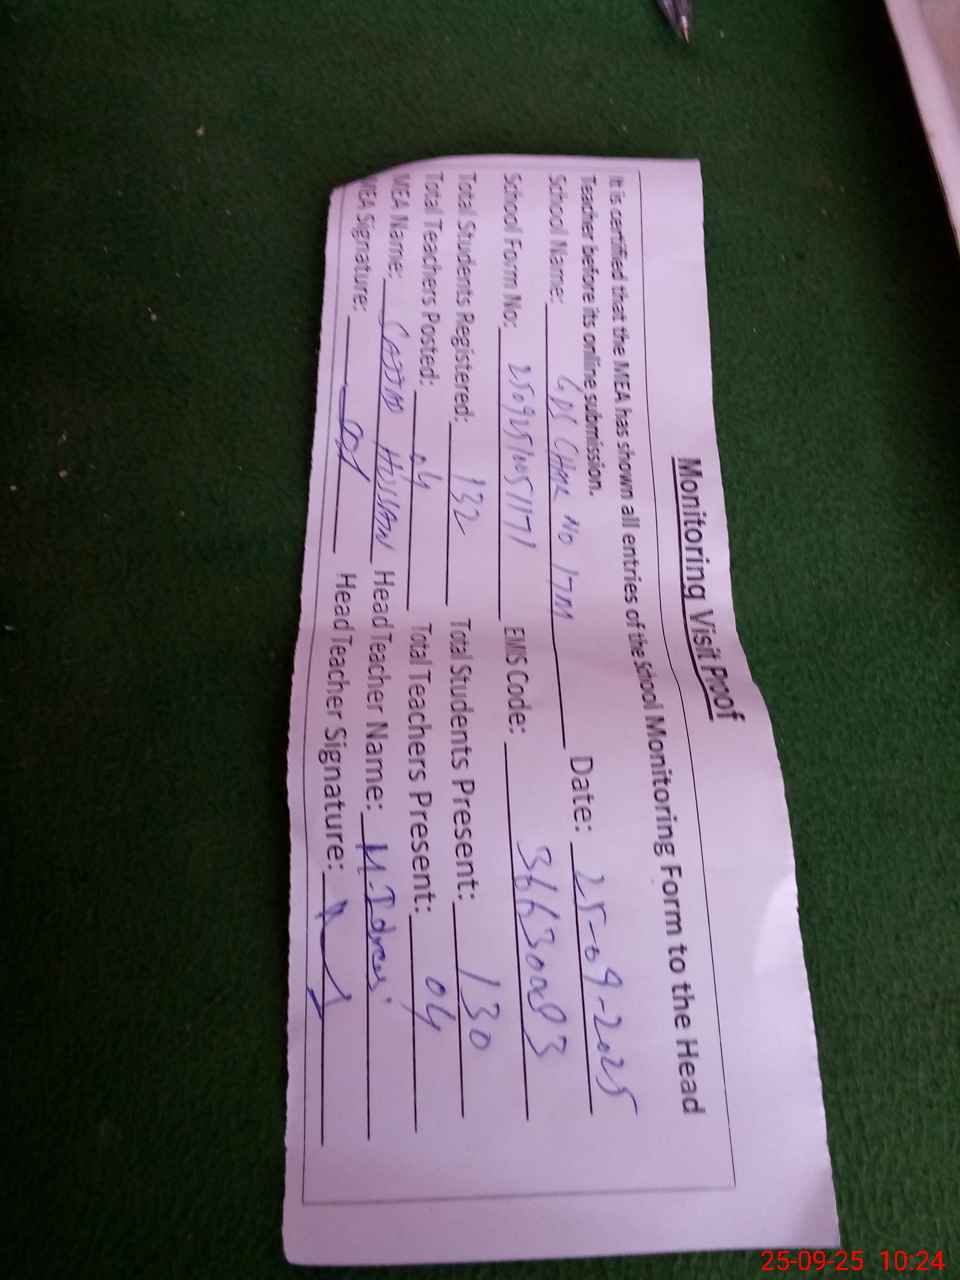 Monitoring Visit Proof
It is certified that the MEA has shown all entries of the School Monitoring Form to the Head
Teacher before its online submission.
School Name: GPS CHAK NO 17M Date: 25-09-2025
School Form No: EMIS Code: 36630083
Total Students Registered: 132 Total Students Present: 130
Total Teachers Posted: 04 Total Teachers Present: 04
MEA Name: SAJJAD HUSSAIN Head Teacher Name: M. Idrees
MEA Signature: Head Teacher Signature:
25-09-25 10:24